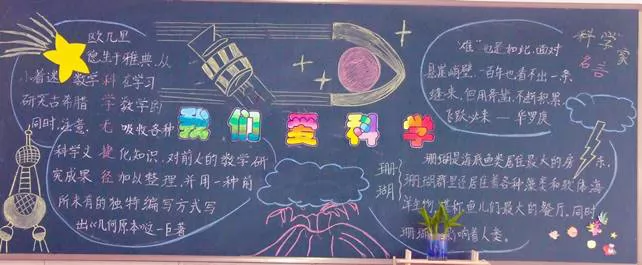 欧几里
德生于雅典,从
小着迷数学科在学习
研究古希腊学数学的
同时,注意无吸收各种
科学文捷化知识,对前人的数学研
究成果径加以整理,并用一种前
所未有的独特编写方式写
出《几何原本》这一巨著
我们爱科学
科学家
名言
"难"也是如此,面对
悬崖峭壁,一百年也看不出一条
缝来,但用斧凿,不断积累,
飞跃必来——华罗庚
珊瑚
珊瑚是海底鱼类居住最大的房东,
珊瑚群里还居住着各种藻类和软体海
洋生物,鱼儿们最大的餐厅,同时
珊瑚影响着人类。